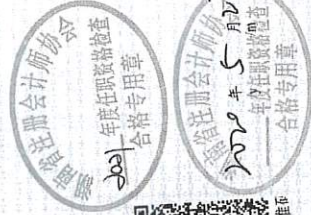 省注册会计师协会
2021
年度任职资格检查
合格专用章
省注册会计师协
2020年5月2
年度任职资格检
合格专用章